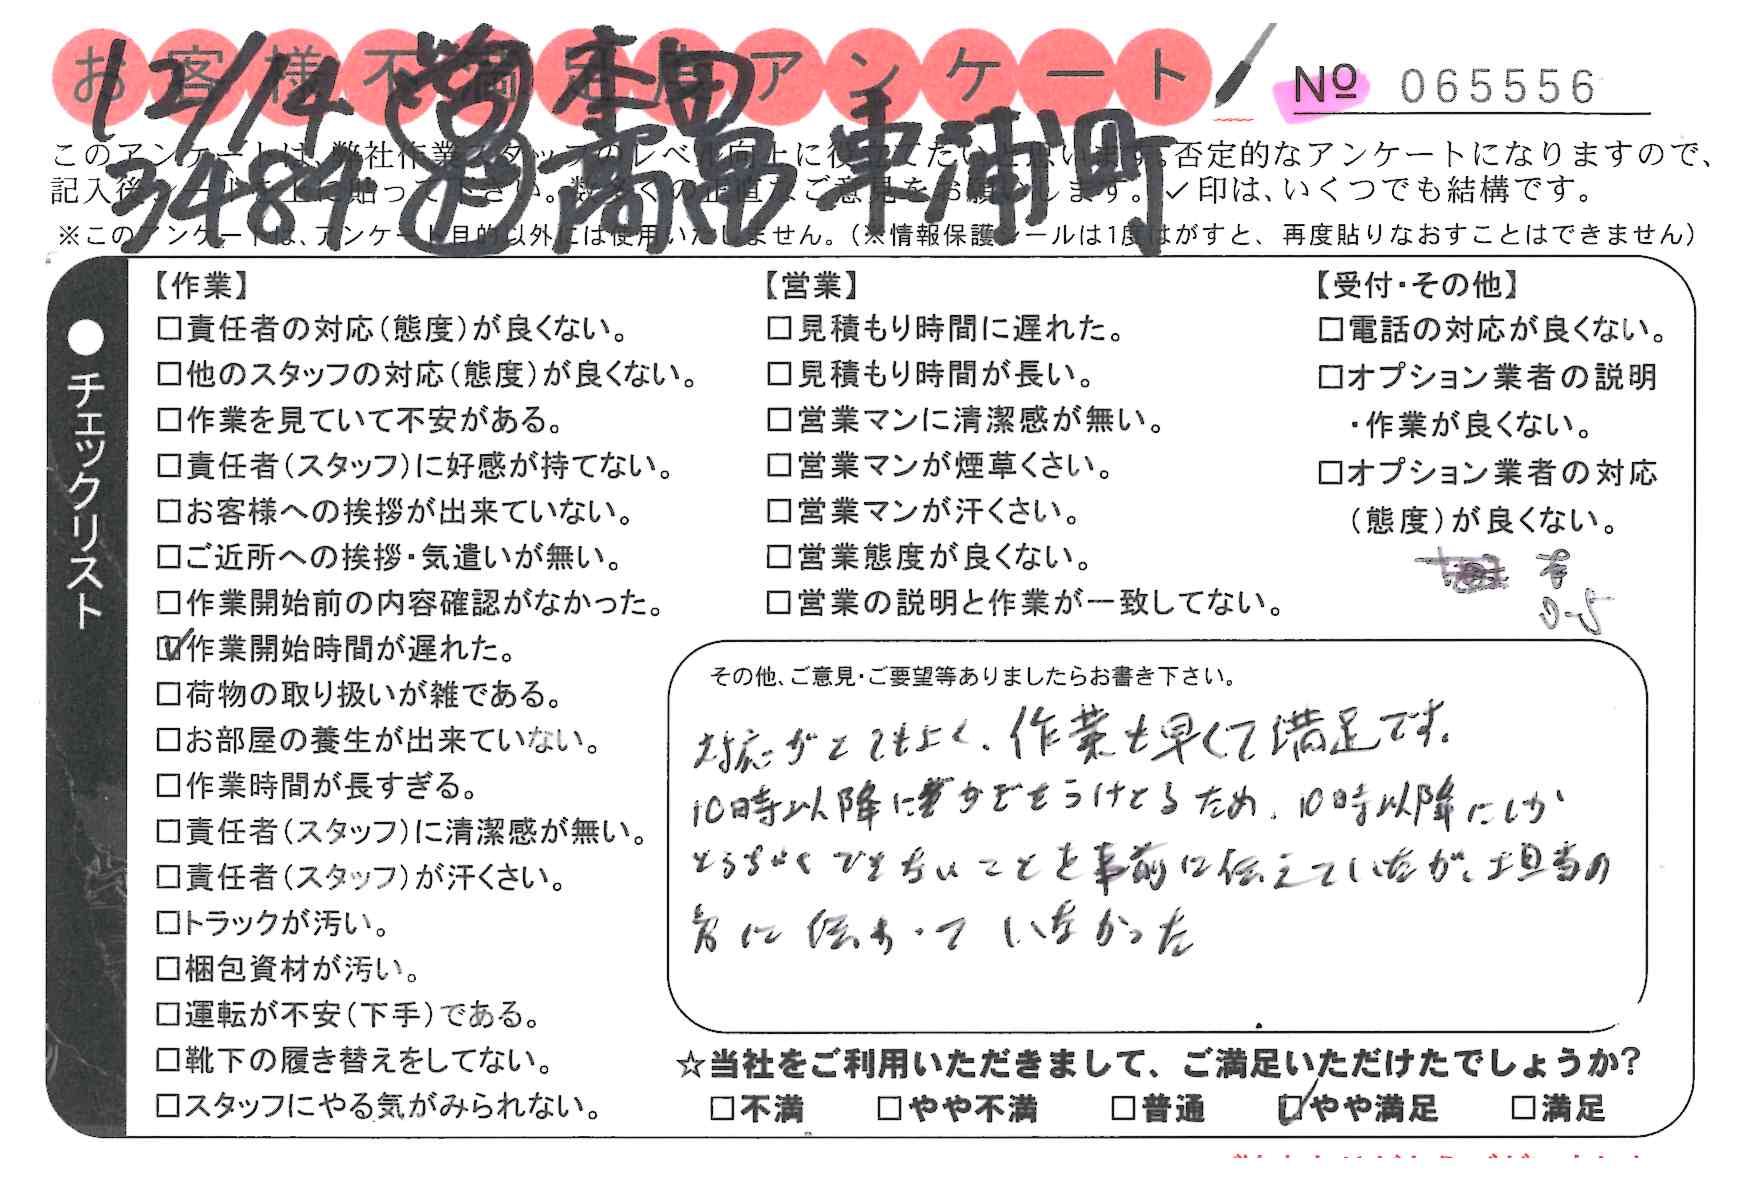 お客様不満足度アンケート
No 065556
12/14 営 本田
3484 高畠 東浦町
このアンケートは、弊社作業スタッフのレベル向上に役立てたいと思います。否定的なアンケートになりますので、
記入後シールを上に貼って下さい。数多くの正直なご意見をお願いします。✓印は、いくつでも結構です。
※このアンケートは、アンケート目的以外には使用いたしません。(※情報保護シールは1度はがすと、再度貼りなおすことはできません)
●チェックリスト
【作業】
□責任者の対応(態度)が良くない。
□他のスタッフの対応(態度)が良くない。
□作業を見ていて不安がある。
□責任者(スタッフ)に好感が持てない。
□お客様への挨拶が出来ていない。
□ご近所への挨拶・気遣いが無い。
□作業開始前の内容確認がなかった。
☑作業開始時間が遅れた。
□荷物の取り扱いが雑である。
□お部屋の養生が出来ていない。
□作業時間が長すぎる。
□責任者(スタッフ)に清潔感が無い。
□責任者(スタッフ)が汗くさい。
□トラックが汚い。
□梱包資材が汚い。
□運転が不安(下手)である。
□靴下の履き替えをしてない。
□スタッフにやる気がみられない。
【営業】
□見積もり時間に遅れた。
□見積もり時間が長い。
□営業マンに清潔感が無い。
□営業マンが煙草くさい。
□営業マンが汗くさい。
□営業態度が良くない。
□営業の説明と作業が一致してない。
【受付・その他】
□電話の対応が良くない。
□オプション業者の説明
・作業が良くない。
□オプション業者の対応
(態度)が良くない。
その他、ご意見・ご要望等ありましたらお書き下さい。
対応がとてもよく、作業も早くて満足です。
10時以降にかぎをうけとるため、10時以降にしか
とうちゃくできないことを事前に伝えていたが、担当の
方に伝わっていなかった
☆当社をご利用いただきまして、ご満足いただけたでしょうか?
□不満 □やや不満 □普通 ☑やや満足 □満足